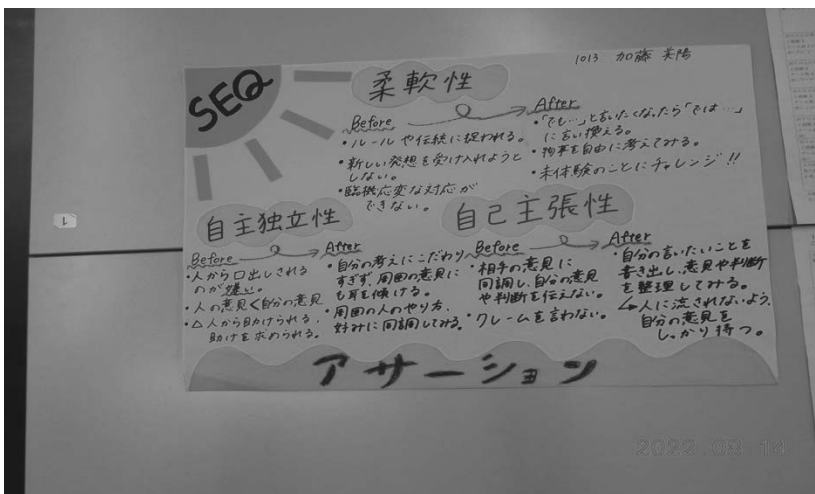 1013 加藤 美陽
SEQ
柔軟性
Before
・ルールや伝統に捉われる。
・新しい発想を受け入れようと
しない。
・臨機応変な対応が
できない。
After
・「でも…」と言いたくなったら「では…」
に言い換える。
・物事を自由に考えてみる。
・未体験のことにチャレンジ!!
自主独立性
Before
・人から口出しされる
のが嫌い。
・人の意見<自分の意見
・△人から助けられる、
助けを求められる。
After
・自分の考えにこだわり
すぎず、周囲の意見に
も耳を傾ける。
・周囲の人のやり方、
好みに同調してみる。
自己主張性
Before
・相手の意見に
同調し、自分の意見
や判断を伝えない。
・クレームを言わない。
After
・自分の言いたいことを
書き出し、意見や判断
を整理してみる。
↳人に流されないよう、
自分の意見を
しっかり持つ。
アサーション
2022.09.14